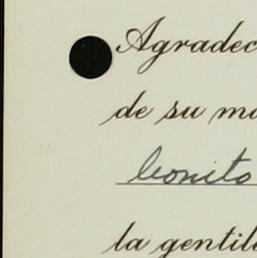 Agradec
de su ma
bonito
la gentile